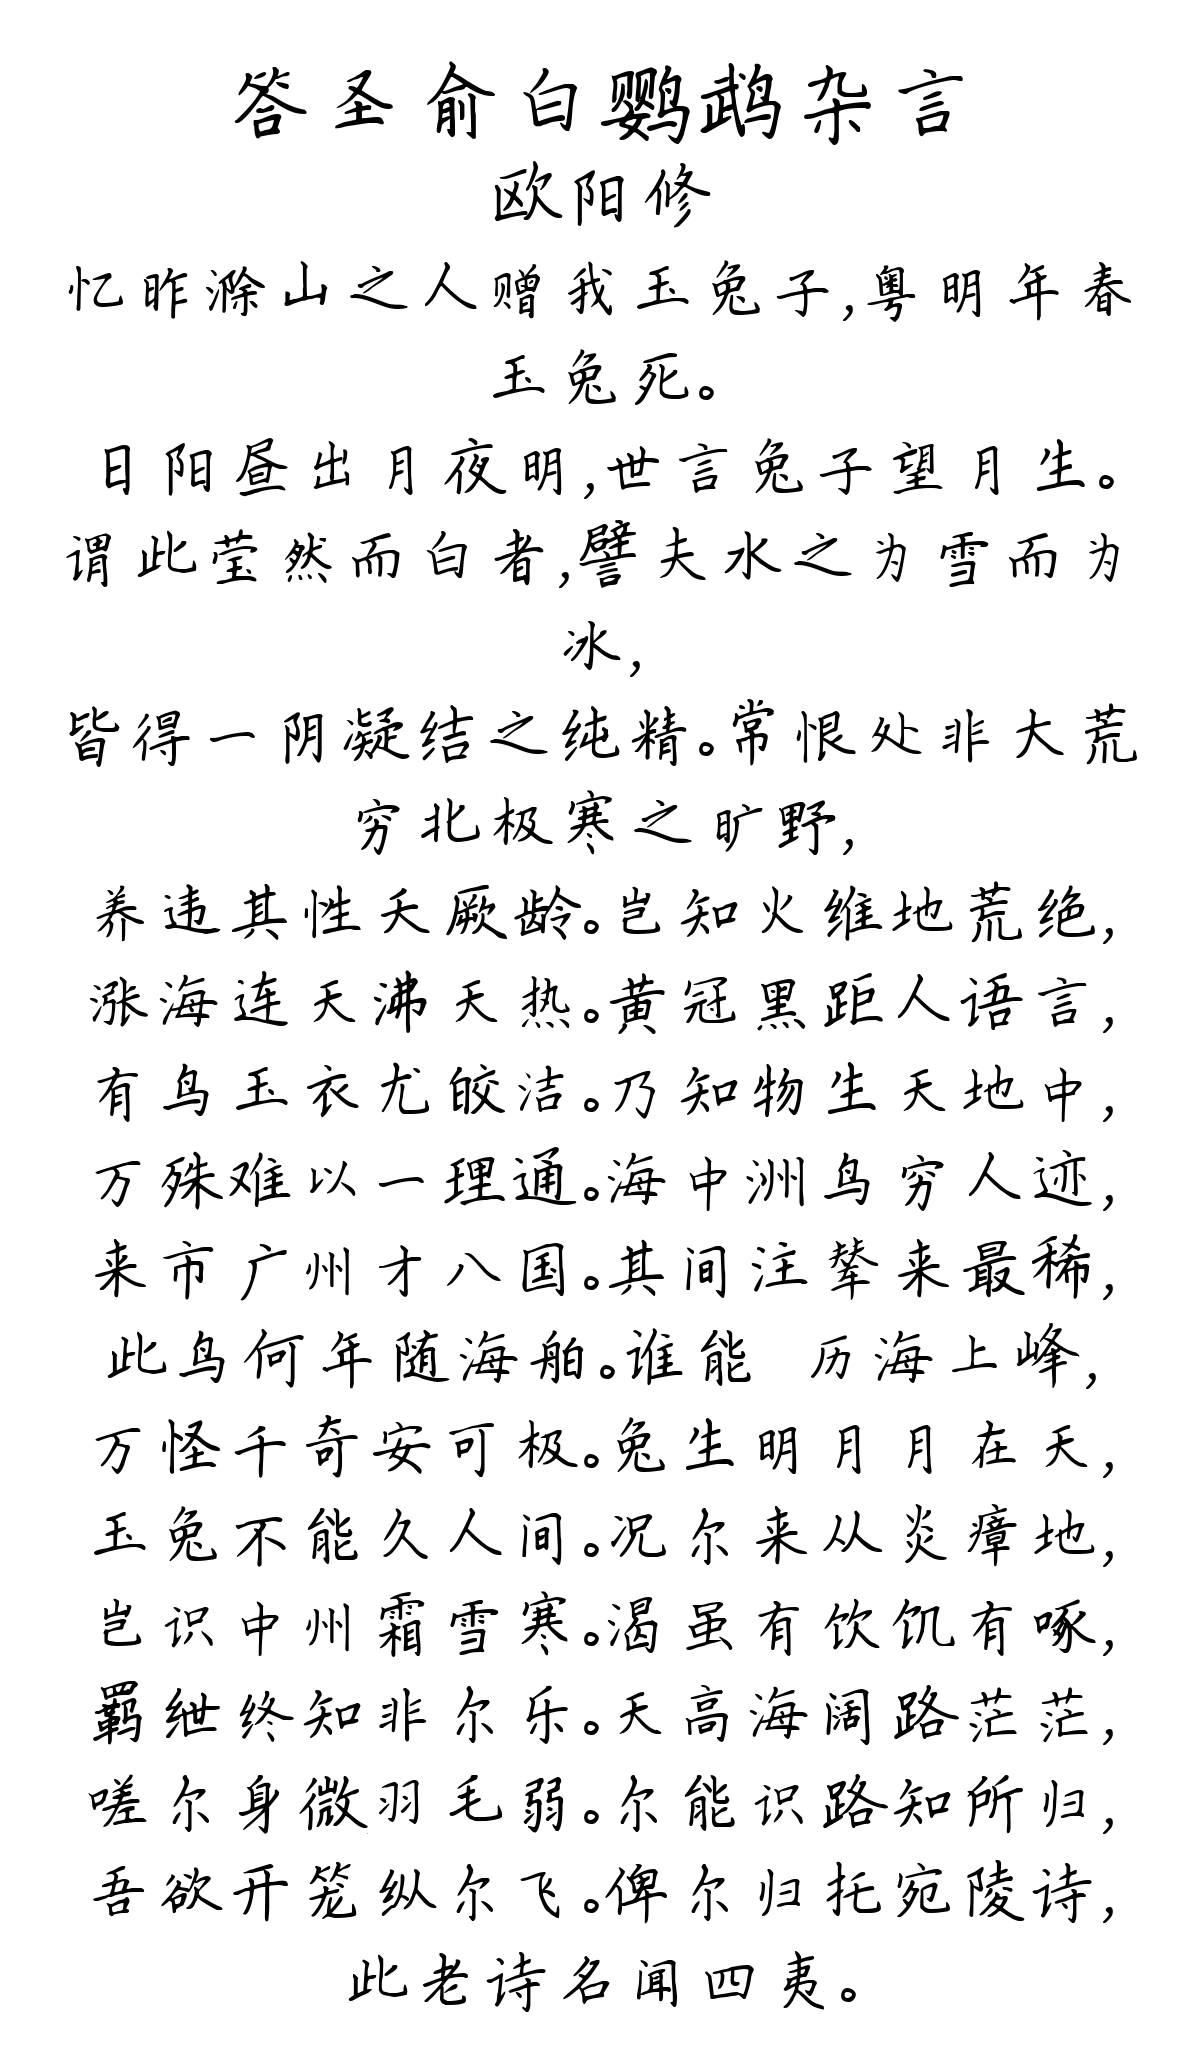 答圣俞白鹦鹉杂言
欧阳修
忆昨滁山之人赠我玉兔子,粤明年春
玉兔死。
日阳昼出月夜明,世言兔子望月生。
谓此莹然而白者,譬夫水之为雪而为
冰,
皆得一阴凝结之纯精。常恨处非大荒
穷北极寒之旷野,
养违其性夭厥龄。岂知火维地荒绝,
涨海连天沸天热。黄冠黑距人语言,
有鸟玉衣尤皎洁。乃知物生天地中,
万殊难以一理通。海中洲鸟穷人迹,
来市广州才八国。其间注辇来最稀,
此鸟何年随海舶。谁能 历海上峰,
万怪千奇安可极。兔生明月月在天,
玉兔不能久人间。况尔来从炎瘴地,
岂识中州霜雪寒。渴虽有饮饥有啄,
羁绁终知非尔乐。天高海阔路茫茫,
嗟尔身微羽毛弱。尔能识路知所归,
吾欲开笼纵尔飞。俾尔归托宛陵诗,
此老诗名闻四夷。